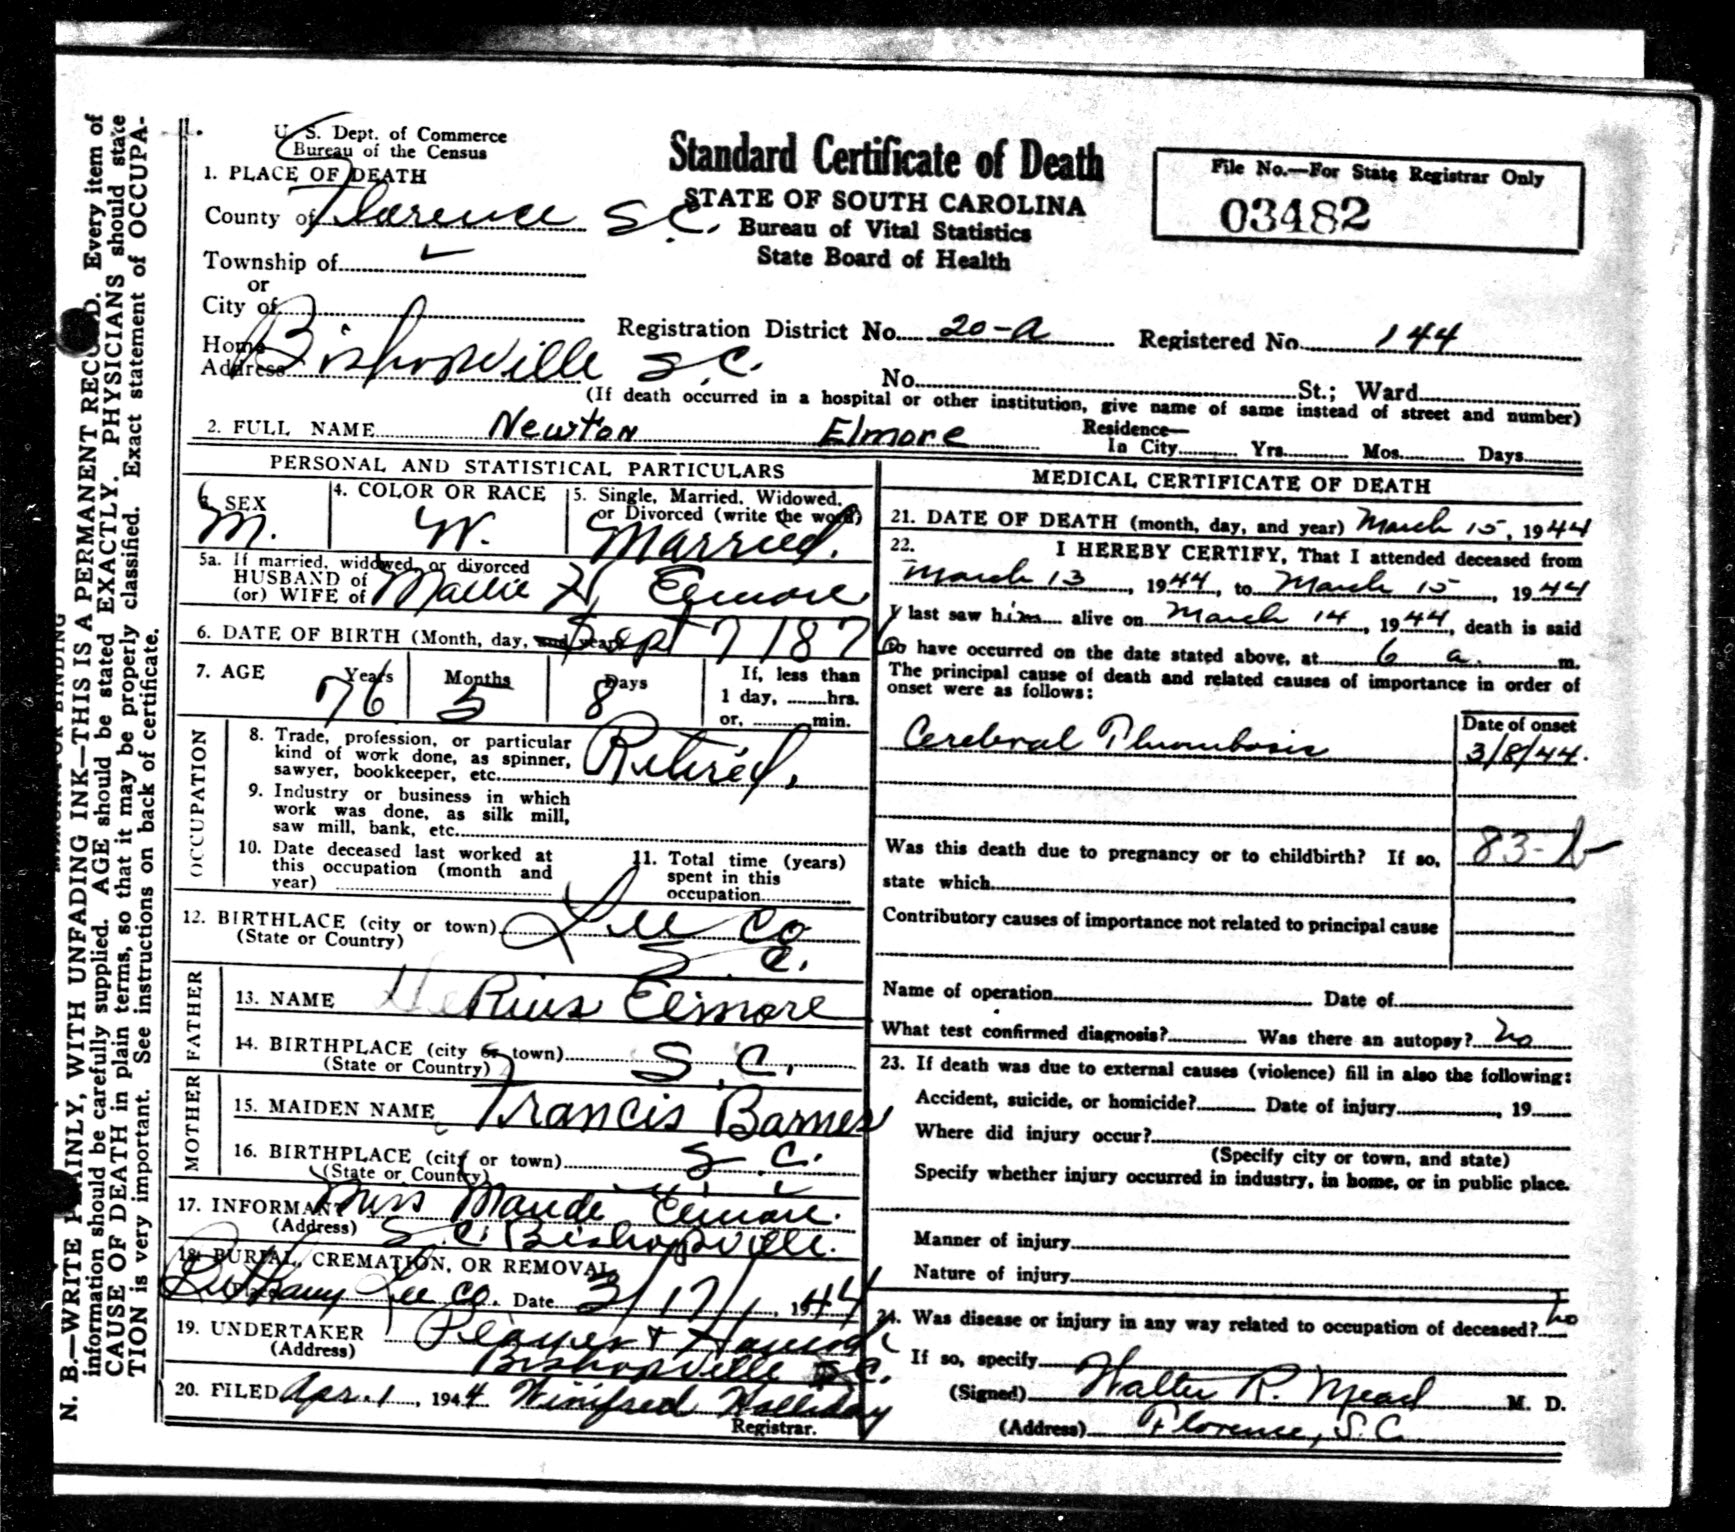 U. S. Dept. of Commerce
Bureau of the Census
Standard Certificate of Death
STATE OF SOUTH CAROLINA
Bureau of Vital Statistics
State Board of Health
File No.—For State Registrar Only
03482
1. PLACE OF DEATH
County of Florence S.C.
Township of
or
City of
Registration District No. 20-A Registered No. 144
Home Address Bishopville S.C.
No. St.; Ward
(If death occurred in a hospital or other institution, give name of same instead of street and number)
2. FULL NAME Newton Elmore
Residence— In City Yrs. Mos. Days
PERSONAL AND STATISTICAL PARTICULARS
3. SEX M.
4. COLOR OR RACE W.
5. Single, Married, Widowed, or Divorced (write the word) Married.
5a. If married, widowed, or divorced
HUSBAND of
(or) WIFE of Mallie H. Elmore
6. DATE OF BIRTH (Month, day, and year) Sept 7 187
7. AGE Years 76 Months 5 Days 8 If, less than 1 day, hrs. or, min.
OCCUPATION
8. Trade, profession, or particular
kind of work done, as spinner,
sawyer, bookkeeper, etc. Retired.
9. Industry or business in which
work was done, as silk mill,
saw mill, bank, etc.
10. Date deceased last worked at
this occupation (month and
year)
11. Total time (years)
spent in this
occupation
12. BIRTHLACE (city or town) Lee Co
(State or Country) S. C.
FATHER
13. NAME Rius Elmore
14. BIRTHPLACE (city or town) S. C.
(State or Country)
MOTHER
15. MAIDEN NAME Francis Barnes
16. BIRTHPLACE (city or town) S. C.
(State or Country)
17. INFORMANT Mrs Maude Elmore.
(Address) S. C. Bishopville.
18. BURIAL, CREMATION, OR REMOVAL
Bethany Lee Co. Date 3/17/, 1944
19. UNDERTAKER
(Address) Bishopville S.C.
20. FILED Apr. 1, 1944 Winifred Holliday
Registrar.
MEDICAL CERTIFICATE OF DEATH
21. DATE OF DEATH (month, day, and year) March 15, 1944
22. I HEREBY CERTIFY, That I attended deceased from
March 13, 1944, to March 15, 1944
I last saw him alive on March 14, 1944, death is said
to have occurred on the date stated above, at 6 a. m.
The principal cause of death and related causes of importance in order of
onset were as follows:
Date of onset
Cerebral Thrombosis 3/8/44.
Was this death due to pregnancy or to childbirth? If so, 83-b
state which
Contributory causes of importance not related to principal cause
Name of operation Date of
What test confirmed diagnosis? Was there an autopsy? no
23. If death was due to external causes (violence) fill in also the following:
Accident, suicide, or homicide? Date of injury, 19
Where did injury occur?
(Specify city or town, and state)
Specify whether injury occurred in industry, in home, or in public place.
Manner of injury
Nature of injury
24. Was disease or injury in any way related to occupation of deceased? no
If so, specify
(Signed) Walter R. Mead M. D.
(Address) Florence, S.C.
N. B.—WRITE PLAINLY, WITH UNFADING INK—THIS IS A PERMANENT RECORD. Every item of
information should be carefully supplied. AGE should be stated EXACTLY. PHYSICIANS should state
CAUSE OF DEATH in plain terms, so that it may be properly classified. Exact statement of OCCUPA-
TION is very important. See instructions on back of certificate.